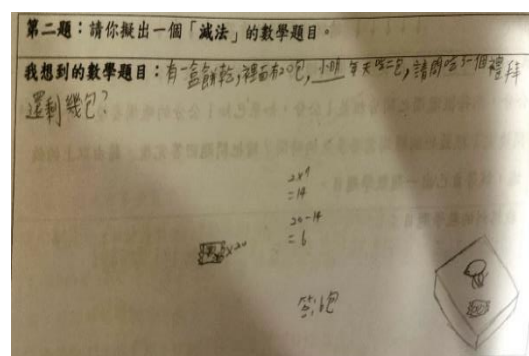 第二題：請你擬出一個「減法」的數學題目。
我想到的數學題目：有一盒餅乾，裡面有20包，小明每天吃二包，請問吃了一個禮拜
還剩幾包？
2×7
=14
20-14
=6
×20
答:6包